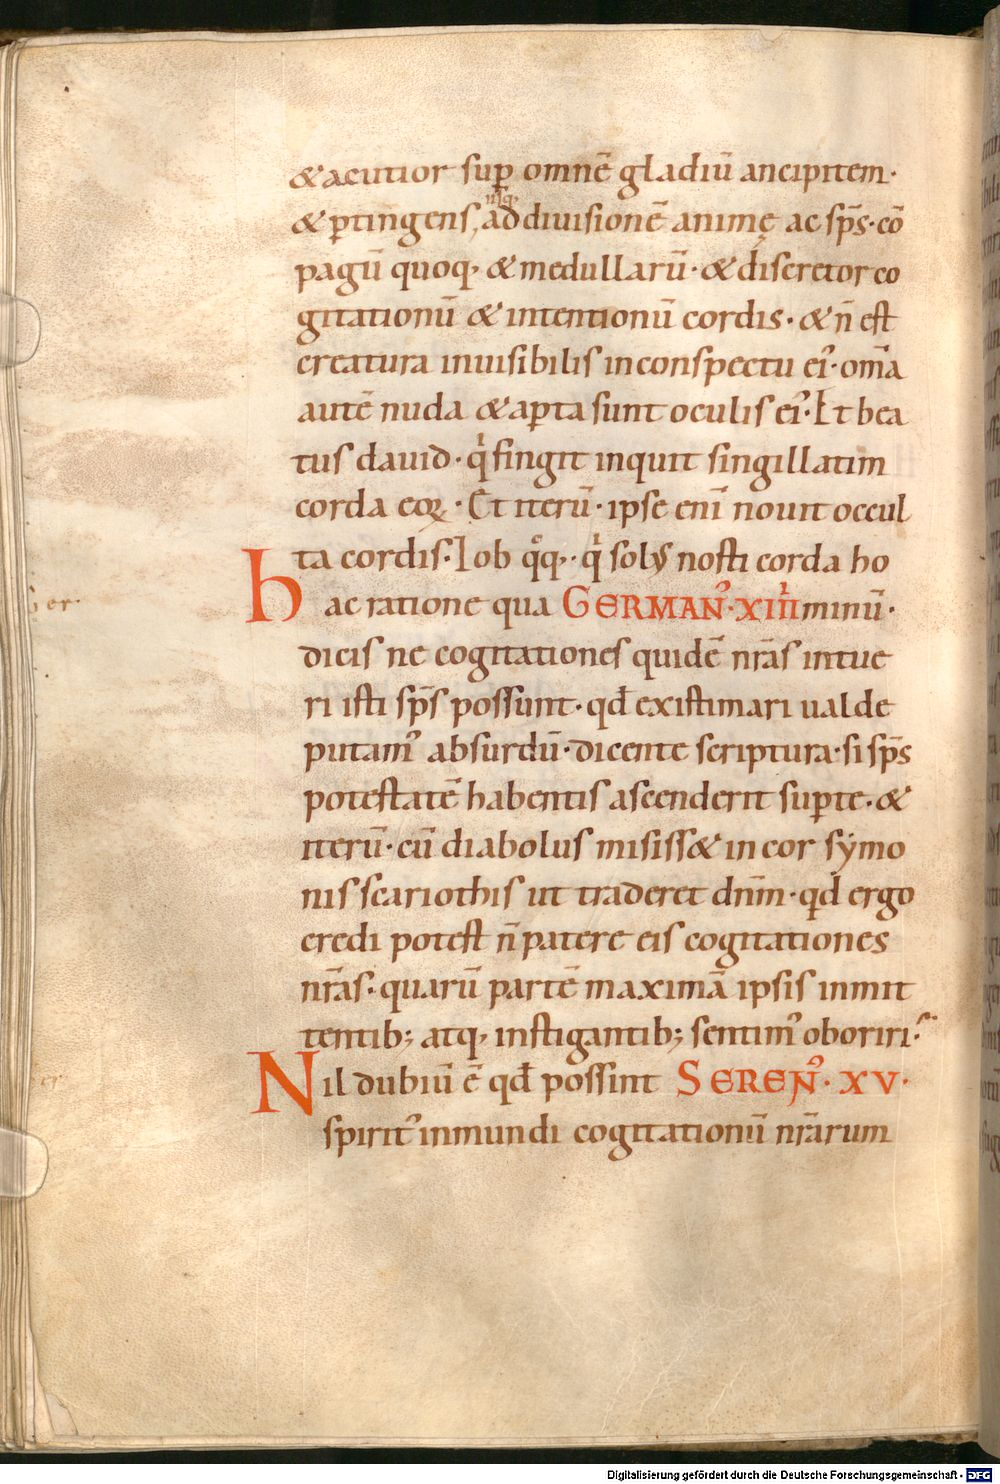 & acutior sup omnē gladiū ancipitem·
& ptingens, usq, ad diuisionē animę ac sp̄s· cō
pagū quoq, & medullarū· & discretor co
gitationū & intentionū cordis· & n̄ est
creatura inuisibilis in conspectu ei᾿· om̄a
autē nuda & apta sunt oculis ei᾿· Et bea
tus dauid· qͥ fingit inquit singillatim
corda eoꝝ· Et iterū· ipse eni᷄ nouit occul
ta cordis· Iob qͦq,· qͥ solus nosti corda ho
hac ratione qua GERMAN᾿· XIIII minū·
dicis ne cogitationes quidē nr̄as intue
ri isti sp̄s possunt· qd̄ existimari ualde
putam᾿ absurdū· dicente scriptura· si sp̄s
potestatē habentis ascenderit sup te· &
iterū· cū diabolus misiss& in cor symo
nis scariothis ut traderet dn̄m· qd̄ ergo
credi potest n̄ patere eis cogitationes
nr̄as· quarū partē maximā ipsis inmit
tentib; atq, instigantib; sentim᾿ oboriri·
Nil dubiū ē qd̄ possint SEREN᾿· XV·
spirit᾿ inmundi cogitationū nr̄arum
Digitalisierung gefördert durch die Deutsche Forschungsgemeinschaft - DFG